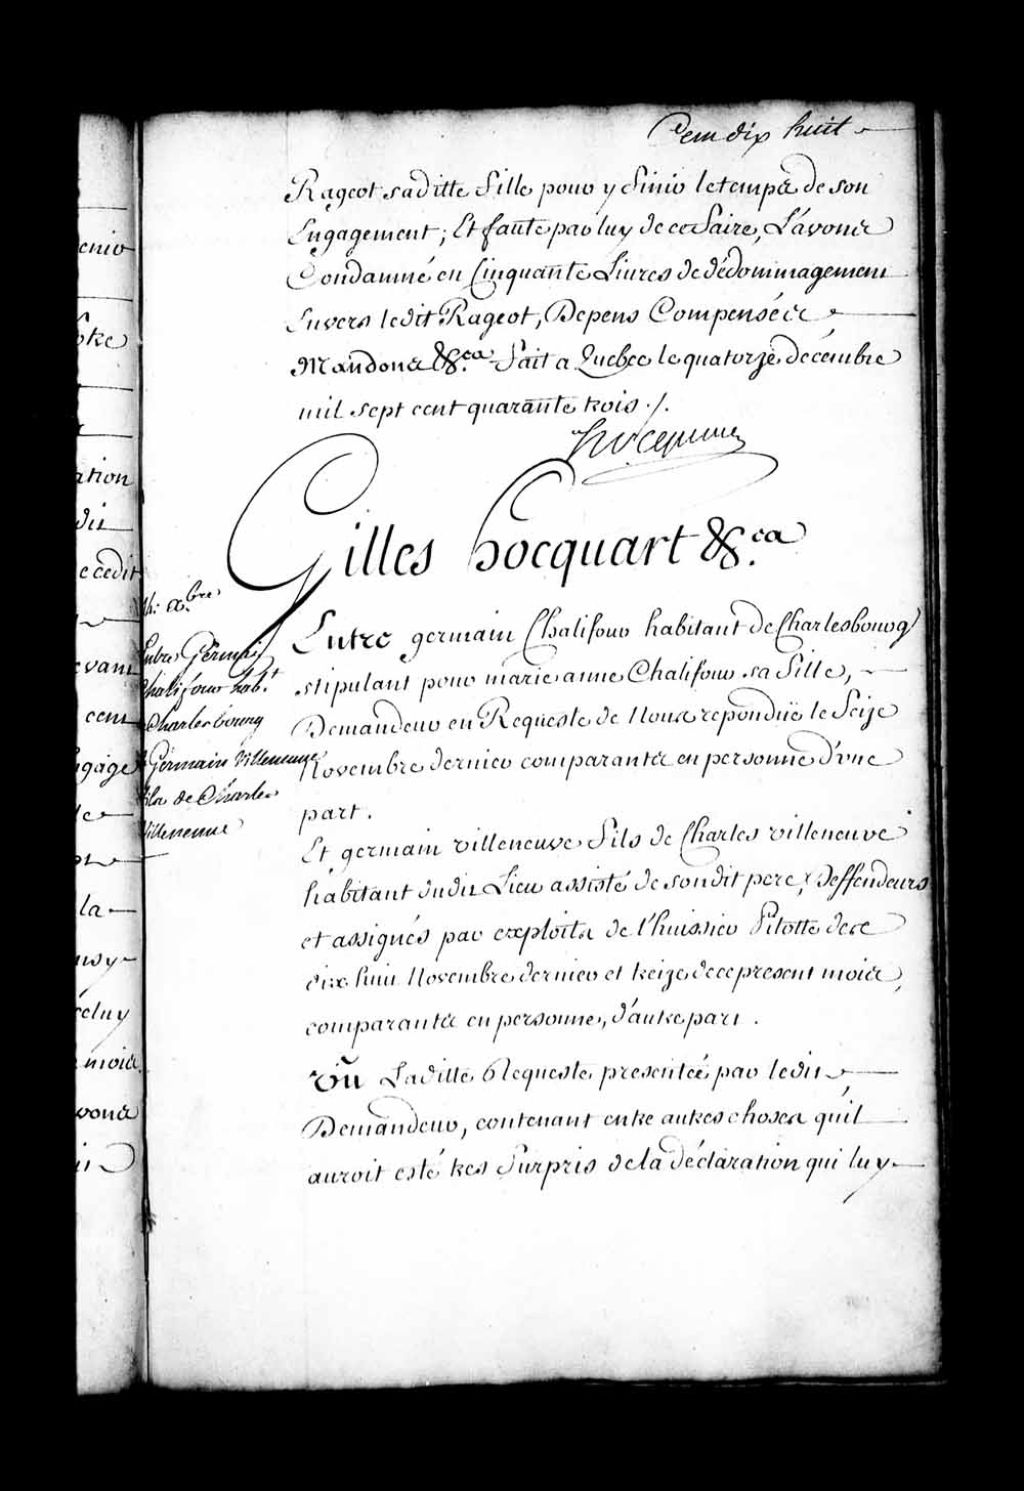 Cent dix huit
Rageot saditte fille pour y finir le temps de son
Engagement; Et faute par luy de ce faire, L'avons
Condamné en Cinquante Livres de dédommagement
Envers ledit Rageot, Depens Compensés
Mandons &c.a fait a Quebec le quatorze décembre
mil sept cent quarante trois ./.
Hocquart
Gilles hocquart &c.a
Entre germain Chalifour habitant de Charlesbourg
stipulant pour marie anne Chalifour sa fille,
Demandeur en Requeste de Nous repondüe le Seize
Novembre dernier comparants en personne d'une
part.
Et germain villeneuve fils de Charles villeneuve
habitant dudit Lieu assisté de sondit pere, Deffendeurs
et assignés par exploits de l'huissier Pilotte des
dix huit Novembre dernier et treize de ce present mois,
comparants en personne, d'autre part.
Vû Laditte Requeste presentée par ledit
Demandeur, contenant entre autres choses qu'il
auroit esté tres surpris de la déclaration qui luy
x.bre
Entre Germain
Chalifour hab.t
Charlesbourg
Germain Villeneuve
fils de Charles
Villeneuve
ation
dit
cedit
cent
la
celuy
mois
vons